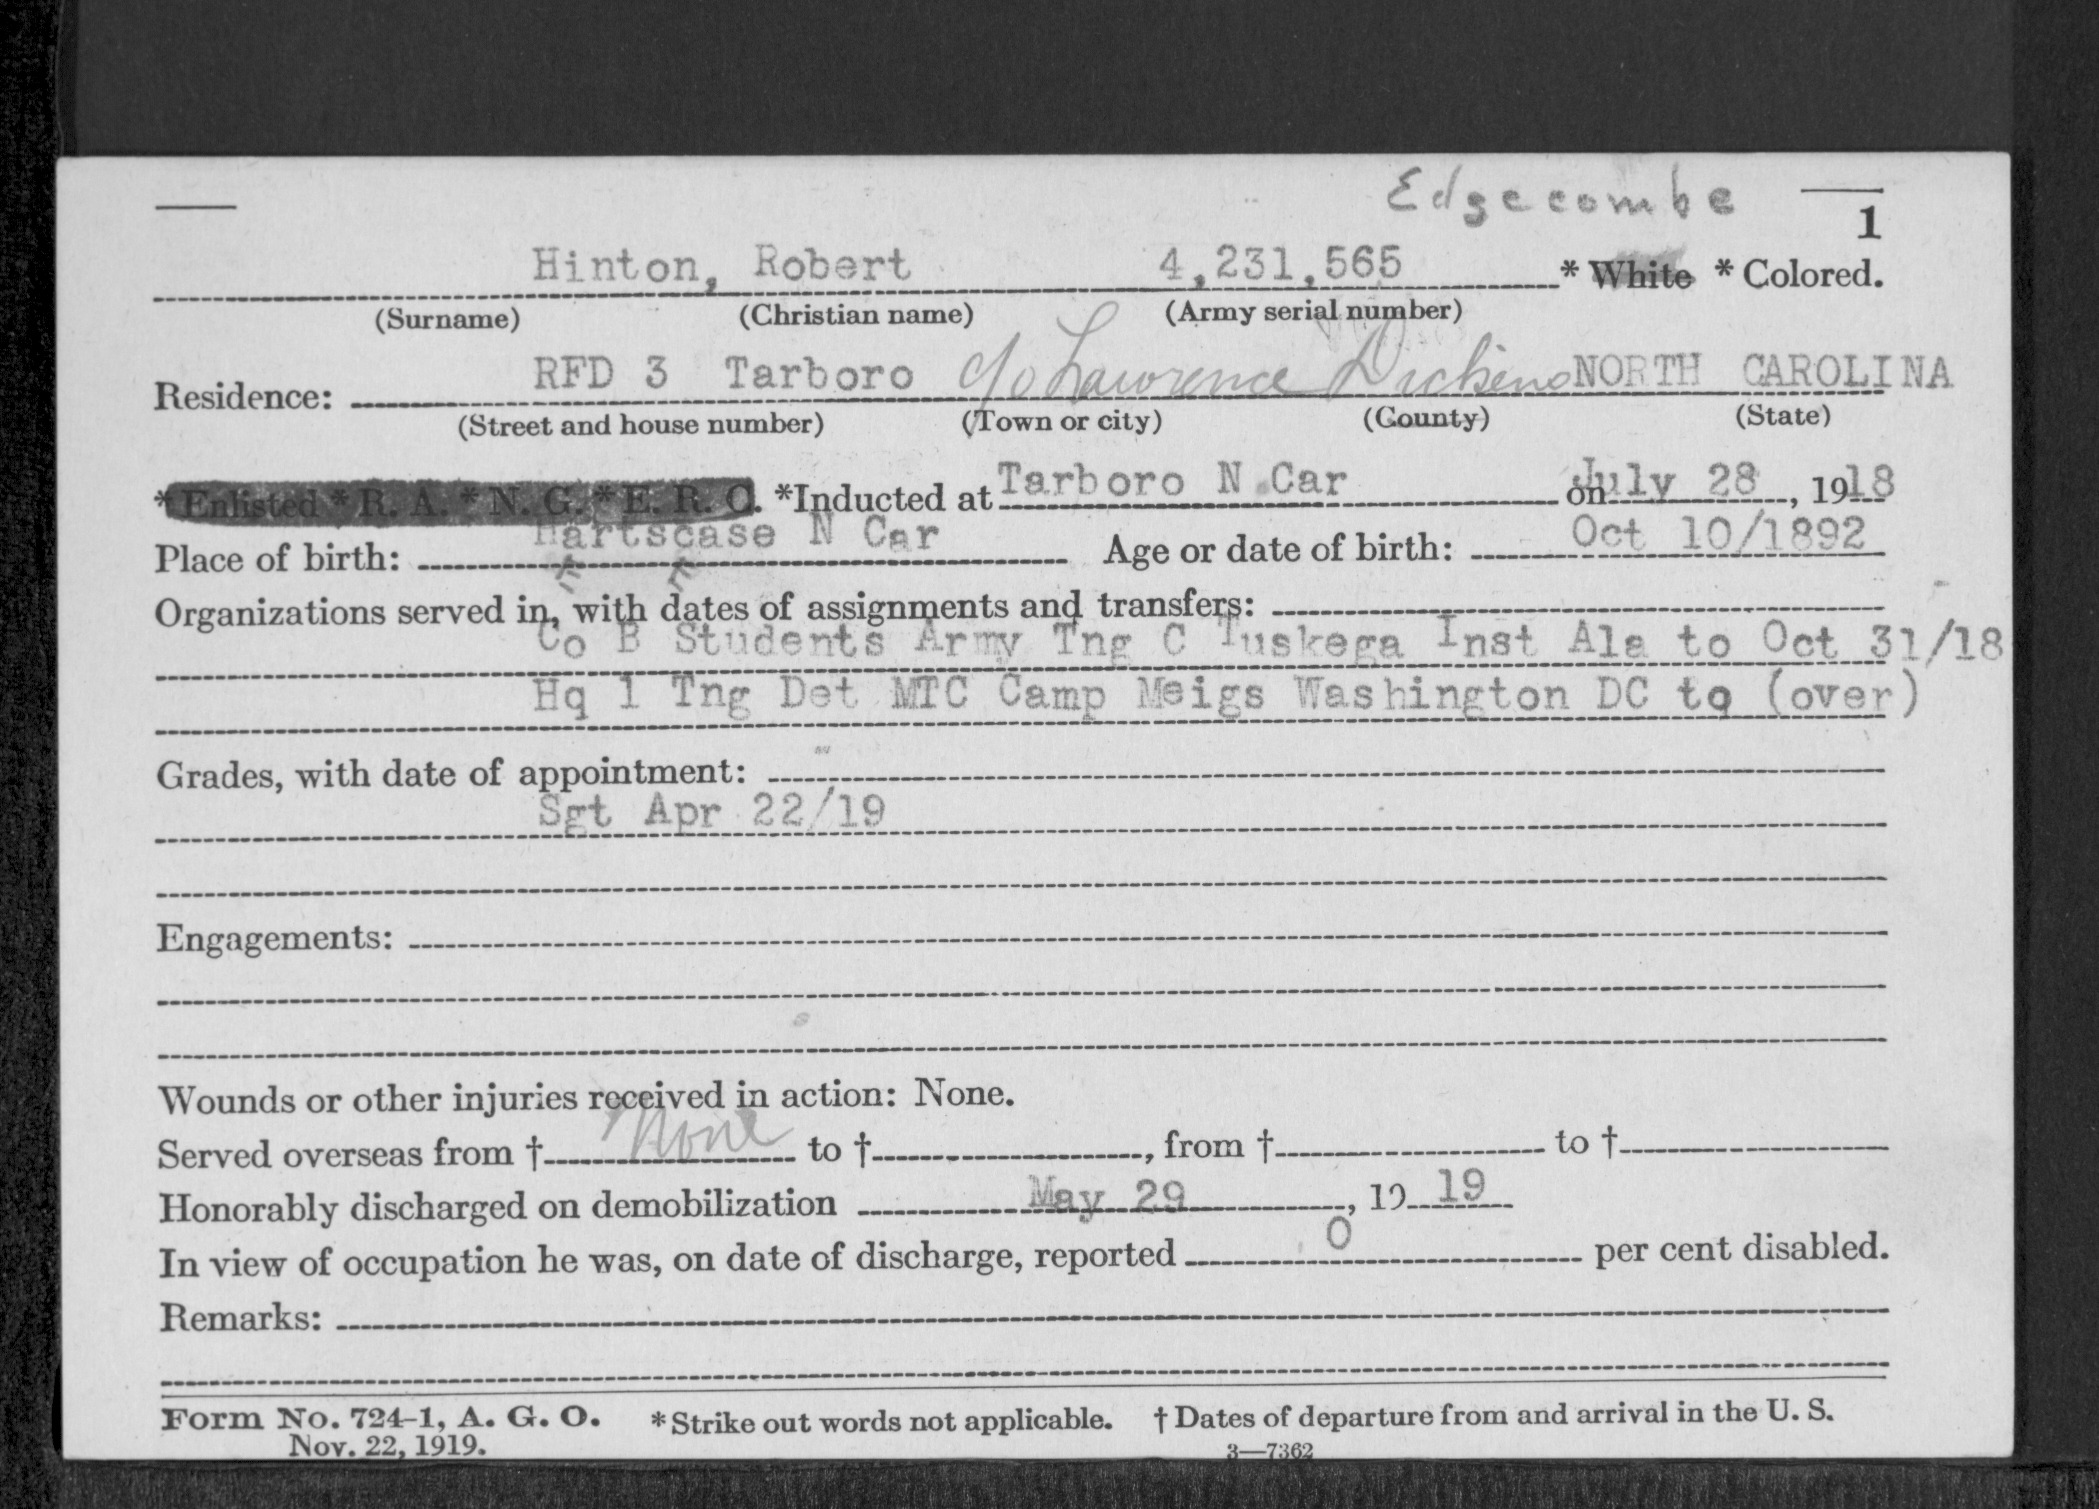 Edgecombe
1
Hinton, Robert 4,231,565 * White * Colored.
(Surname) (Christian name) (Army serial number)
Residence: RFD 3 Tarboro c/o Lawrence Dickens NORTH CAROLINA
(Street and house number) (Town or city) (County) (State)
* Enlisted * R. A. * N. G. * E. R. C. *Inducted at Tarboro N Car on July 28, 1918
Place of birth: Hartscase N Car Age or date of birth: Oct 10/1892
E E
Organizations served in, with dates of assignments and transfers:
Co B Students Army Tng C Tuskega Inst Ala to Oct 31/18
Hq 1 Tng Det MTC Camp Meigs Washington DC to (over)
Grades, with date of appointment:
Sgt Apr 22/19
Engagements:
Wounds or other injuries received in action: None.
Served overseas from † None to †, from † to †
Honorably discharged on demobilization May 29, 19 19
In view of occupation he was, on date of discharge, reported 0 per cent disabled.
Remarks:
Form No. 724-1, A. G. O. * Strike out words not applicable. † Dates of departure from and arrival in the U. S.
Nov. 22, 1919. 3—7362